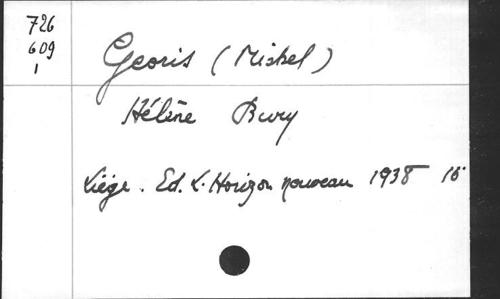 726
609
1
Georis (Michel)
Hélène Bury
Liége. Ed. L'Horizon nouveau 1938 16°